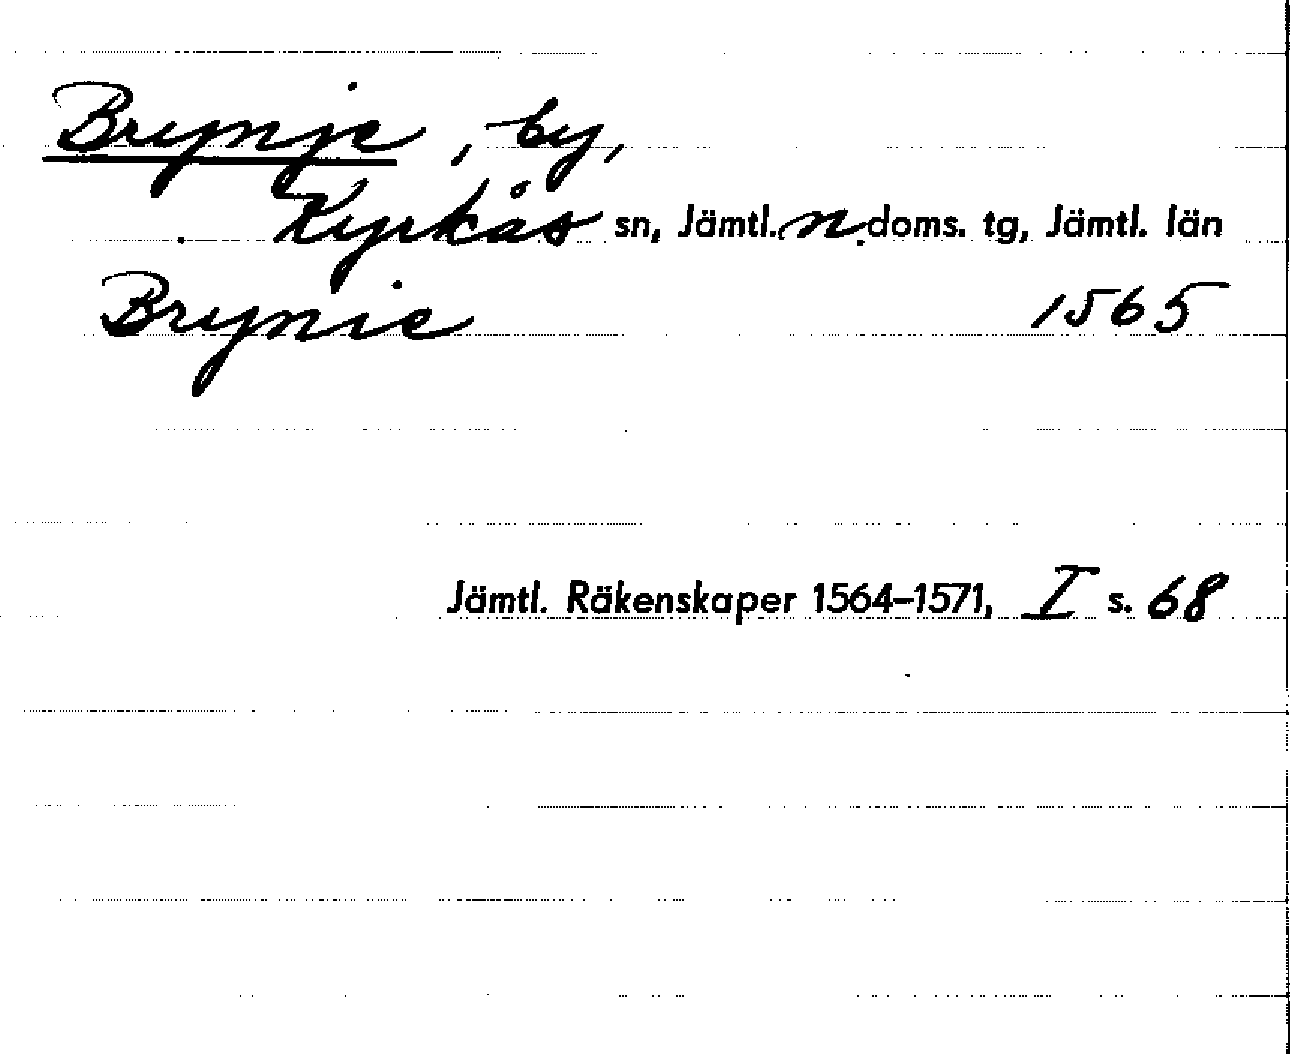 Brynje, by,
Kyrkås sn, Jämtl. n. doms. tg, Jämtl. län
Brynie 1565
Jämtl. Räkenskaper 1564–1571, I s. 68